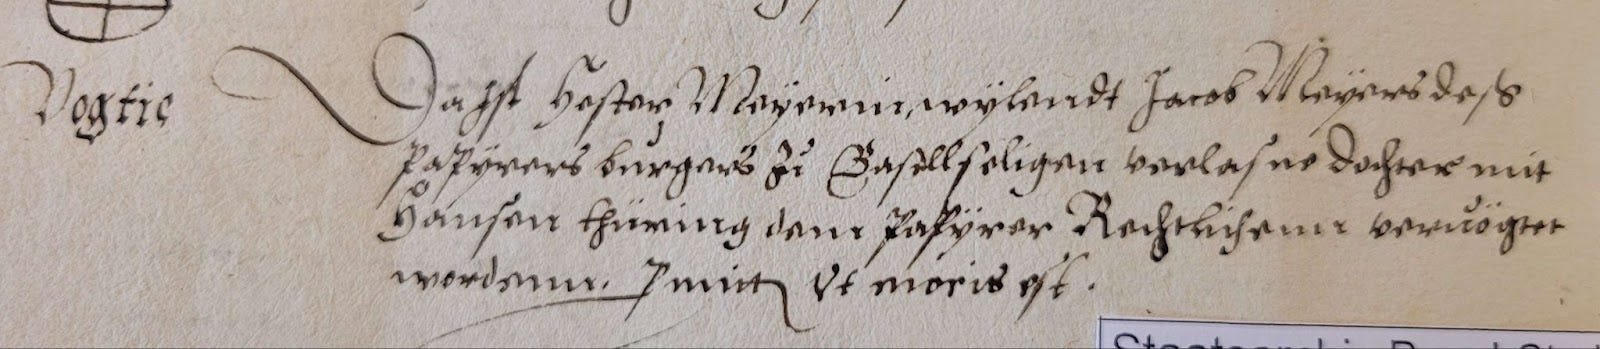 Vogtie
Da ist Hester Meyerin, wylendt Jacob Meyers deß
Papÿrers burgers zů Basell seligen verlasne dochter mit
Hansen thüring dem Papÿrer Rechtlichenn veruögtet
wordenn. ut moris est.
Staatsarchiv Basel-Stadt